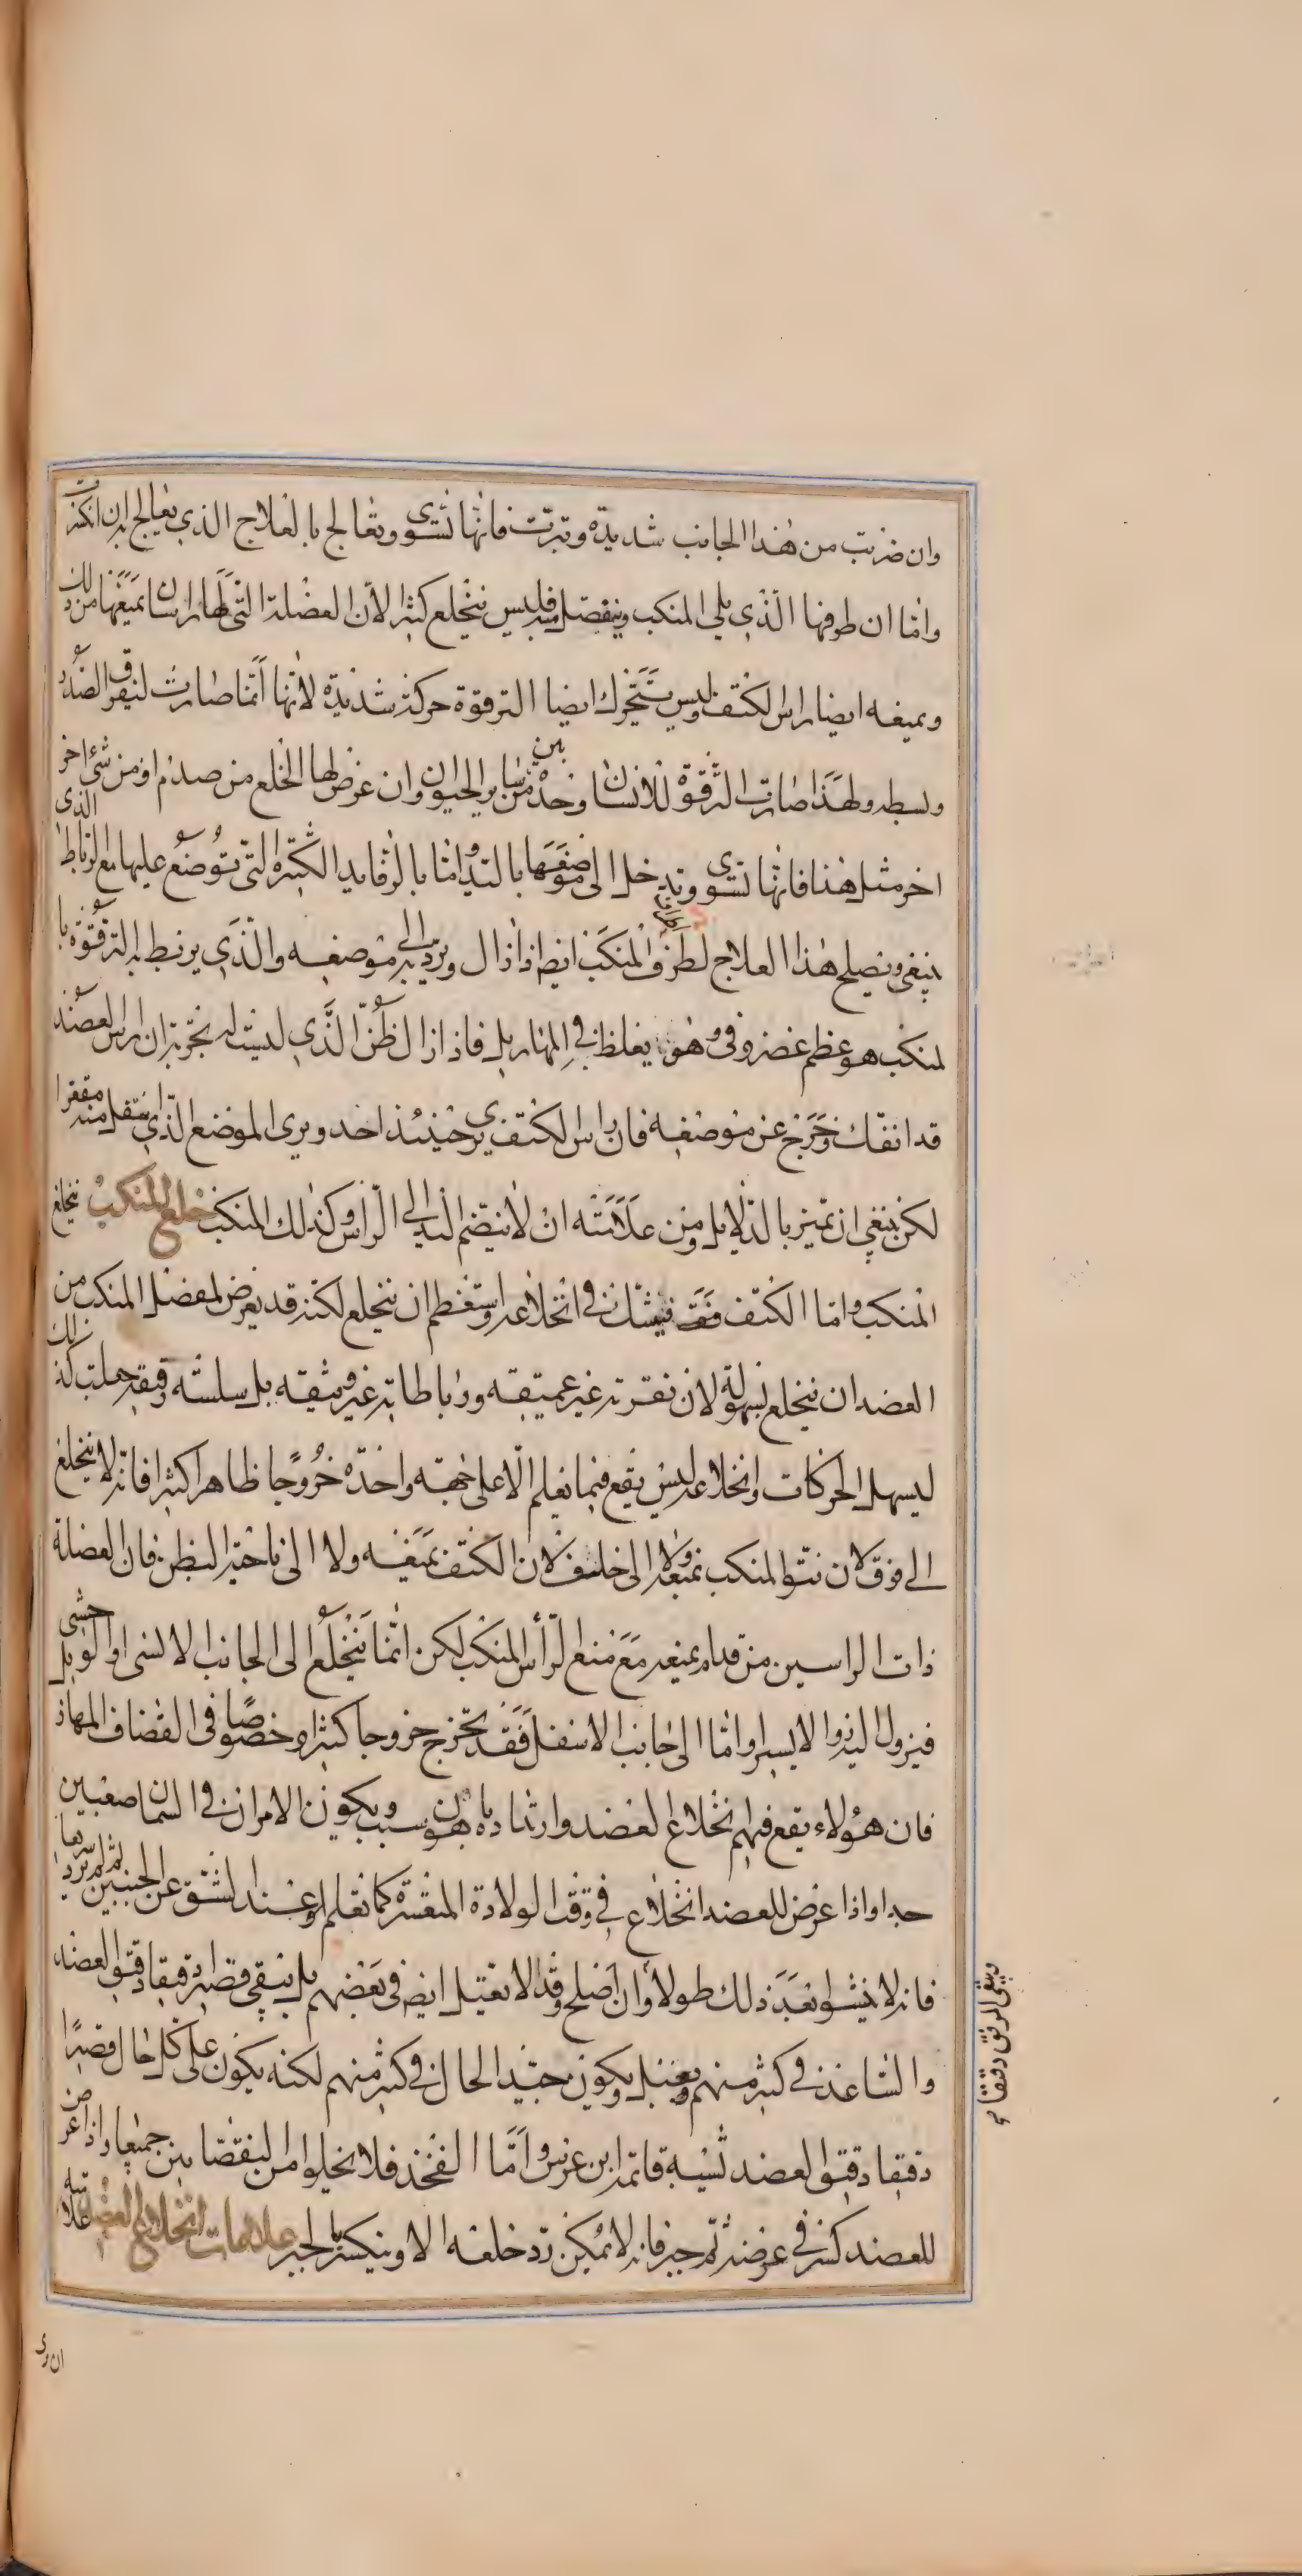 وان ضربت من هذا الجانب شديدة وتبرت فانها تسوى وتعالج بالعلاج الذي يعالج به ان انكسرت
واما ان طرفها الذي يلي المنكب وينفصل منه فليس ينخلع كثيرا لان العضلة التي لها راسان يمنعها من ذلك
ويمنعه ايضا راس الكتف وليس يتحرك ايضا الترقوة حركة شديدة لانها انما صارت لتفرق الصدر
وبسطه ولهذا صارت الترقوة للانسان وحده من بين ساير الحيوان وان عرض لها الخلع من صدم او من شئ اخر
اخر مثل هذا فانها تسوى وتدخل الى موضعها باليد واما بالرفايد الكثيرة التي توضع عليها مع الرباط الذى
ينبغى ويصلح هذا العلاج لطرف المنكب ايضا اذا زال ويرد به الى موضعه والذي يربط به الترقوة با
لمنكب هو عظم غضروفى وهو يغلظ في المهازيل فاذا زال ظن الذي ليست له تجربة ان راس العضد
قد انفك وخرج عن موضعه فان راس الكتف يرى حينئذ احد ويرى الموضع الذي انتقل منه مقعرا
لكن ينبغي ان تميز بالدلايل ومن علامته ان لا ينضم اليد الى الراس وكذلك المنكب خلع المنكب ينخلع
المنكب واما الكتف فقد فيشك في انخلاعه واستعظم ان ينخلع لكنه قد يعرض لمفصل المنكب من
العضد ان ينخلع بسهولة لان نقرته غير عميقه ورباطاته غير وثيقه بل سلسته رقيقه جعلت كذلك
ليسهل الحركات وانخلاعه ليس يقع فيما نعلم الا على جهته واحدة خروجا ظاهرا كثيرا فانه لا ينخلع
الى فوق لان نتو المنكب يمنعه ولا الى خلف لان الكتف يمنعه ولا الى ناحية البطن فان العضلة
ذات الراسين من قدام يمنعه مع منع الرأس المنكب لكن انما ينخلع الى الجانب الانسى او الوحشى بل
فيزول اليزوا الايسرا واما الى جانب الاسفل فقد يخرج خروجا كثيرا وخصوصا فى القضاف المهاز
فان هؤلاء يقع فيهم انخلاع العضد وارتداده باهون سبب ويكون الامران في السمان صعبين
جدا واذا عرض للعضد انخلاع في وقت الولادة المتعسرة كما نعلم او عند الشق عن الجنين ثم لم يرد سريعا
فانه لا ينشو بعد ذلك طولا وان اصلح وقد لا يعتل ايضا فى بعضهم بل يبقى قصيرا دقيقا دقتو العضد
والساعد في كثير منهم ويعبل ويكون جيد الحال في كثير منهم لكنه يكون على كل حال قصيرا
دقيقا دقيق العضد تشبه قائمة ابن عرس واما الفخذ فلا يخلوا من النقصانين جميعا واذا عرض
للعضد كسر في عرضه ثم جبر فانه لا يمكن رد خلعه الا وينكسر الجبر علامات انخلاع العضد علامته
ويبقى المرفق دقيقا صح
ان يرى